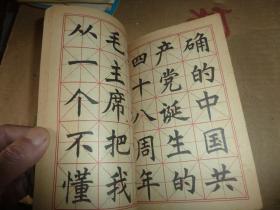 确的中国共
产党诞生的
四十八周年
毛主席把我
从一个不懂